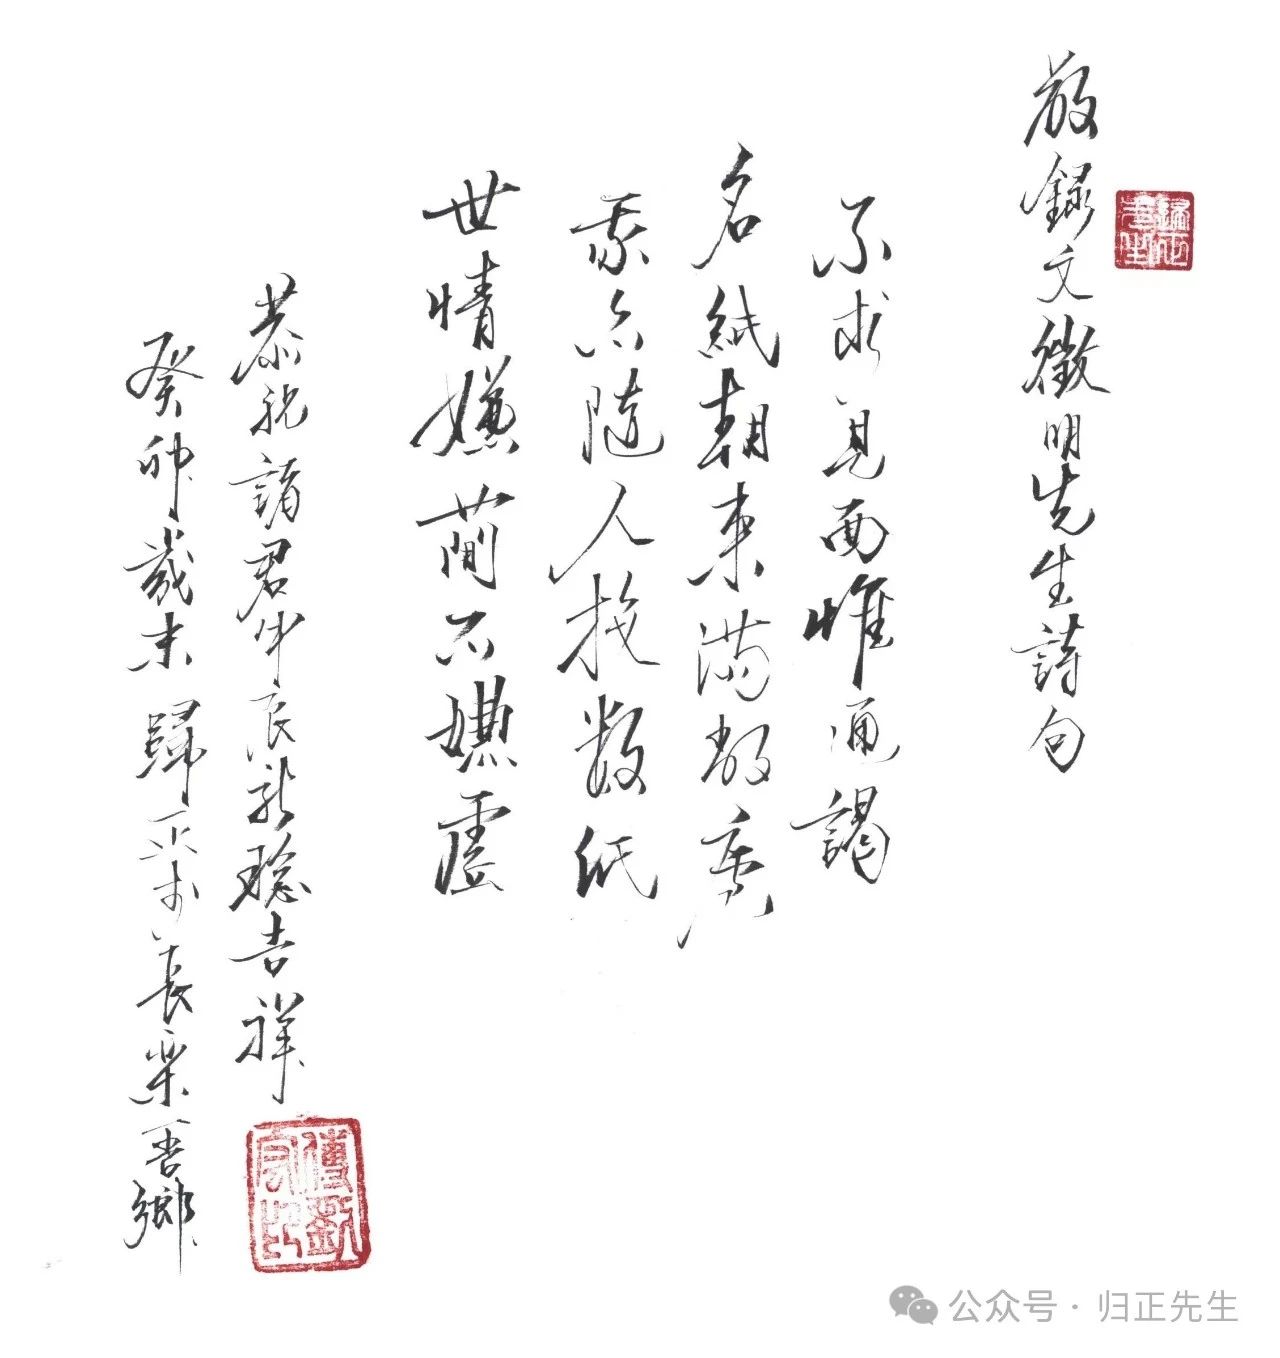 敬錄文徵明先生詩句
不求見面惟通謁
名紙朝來滿敝廬
我亦隨人投數紙
世情嫌簡不嫌虛
恭祝諸君甲辰龍騰吉祥
癸卯歲末歸正於長樂吾鄉
歸正先生
公众号·归正先生